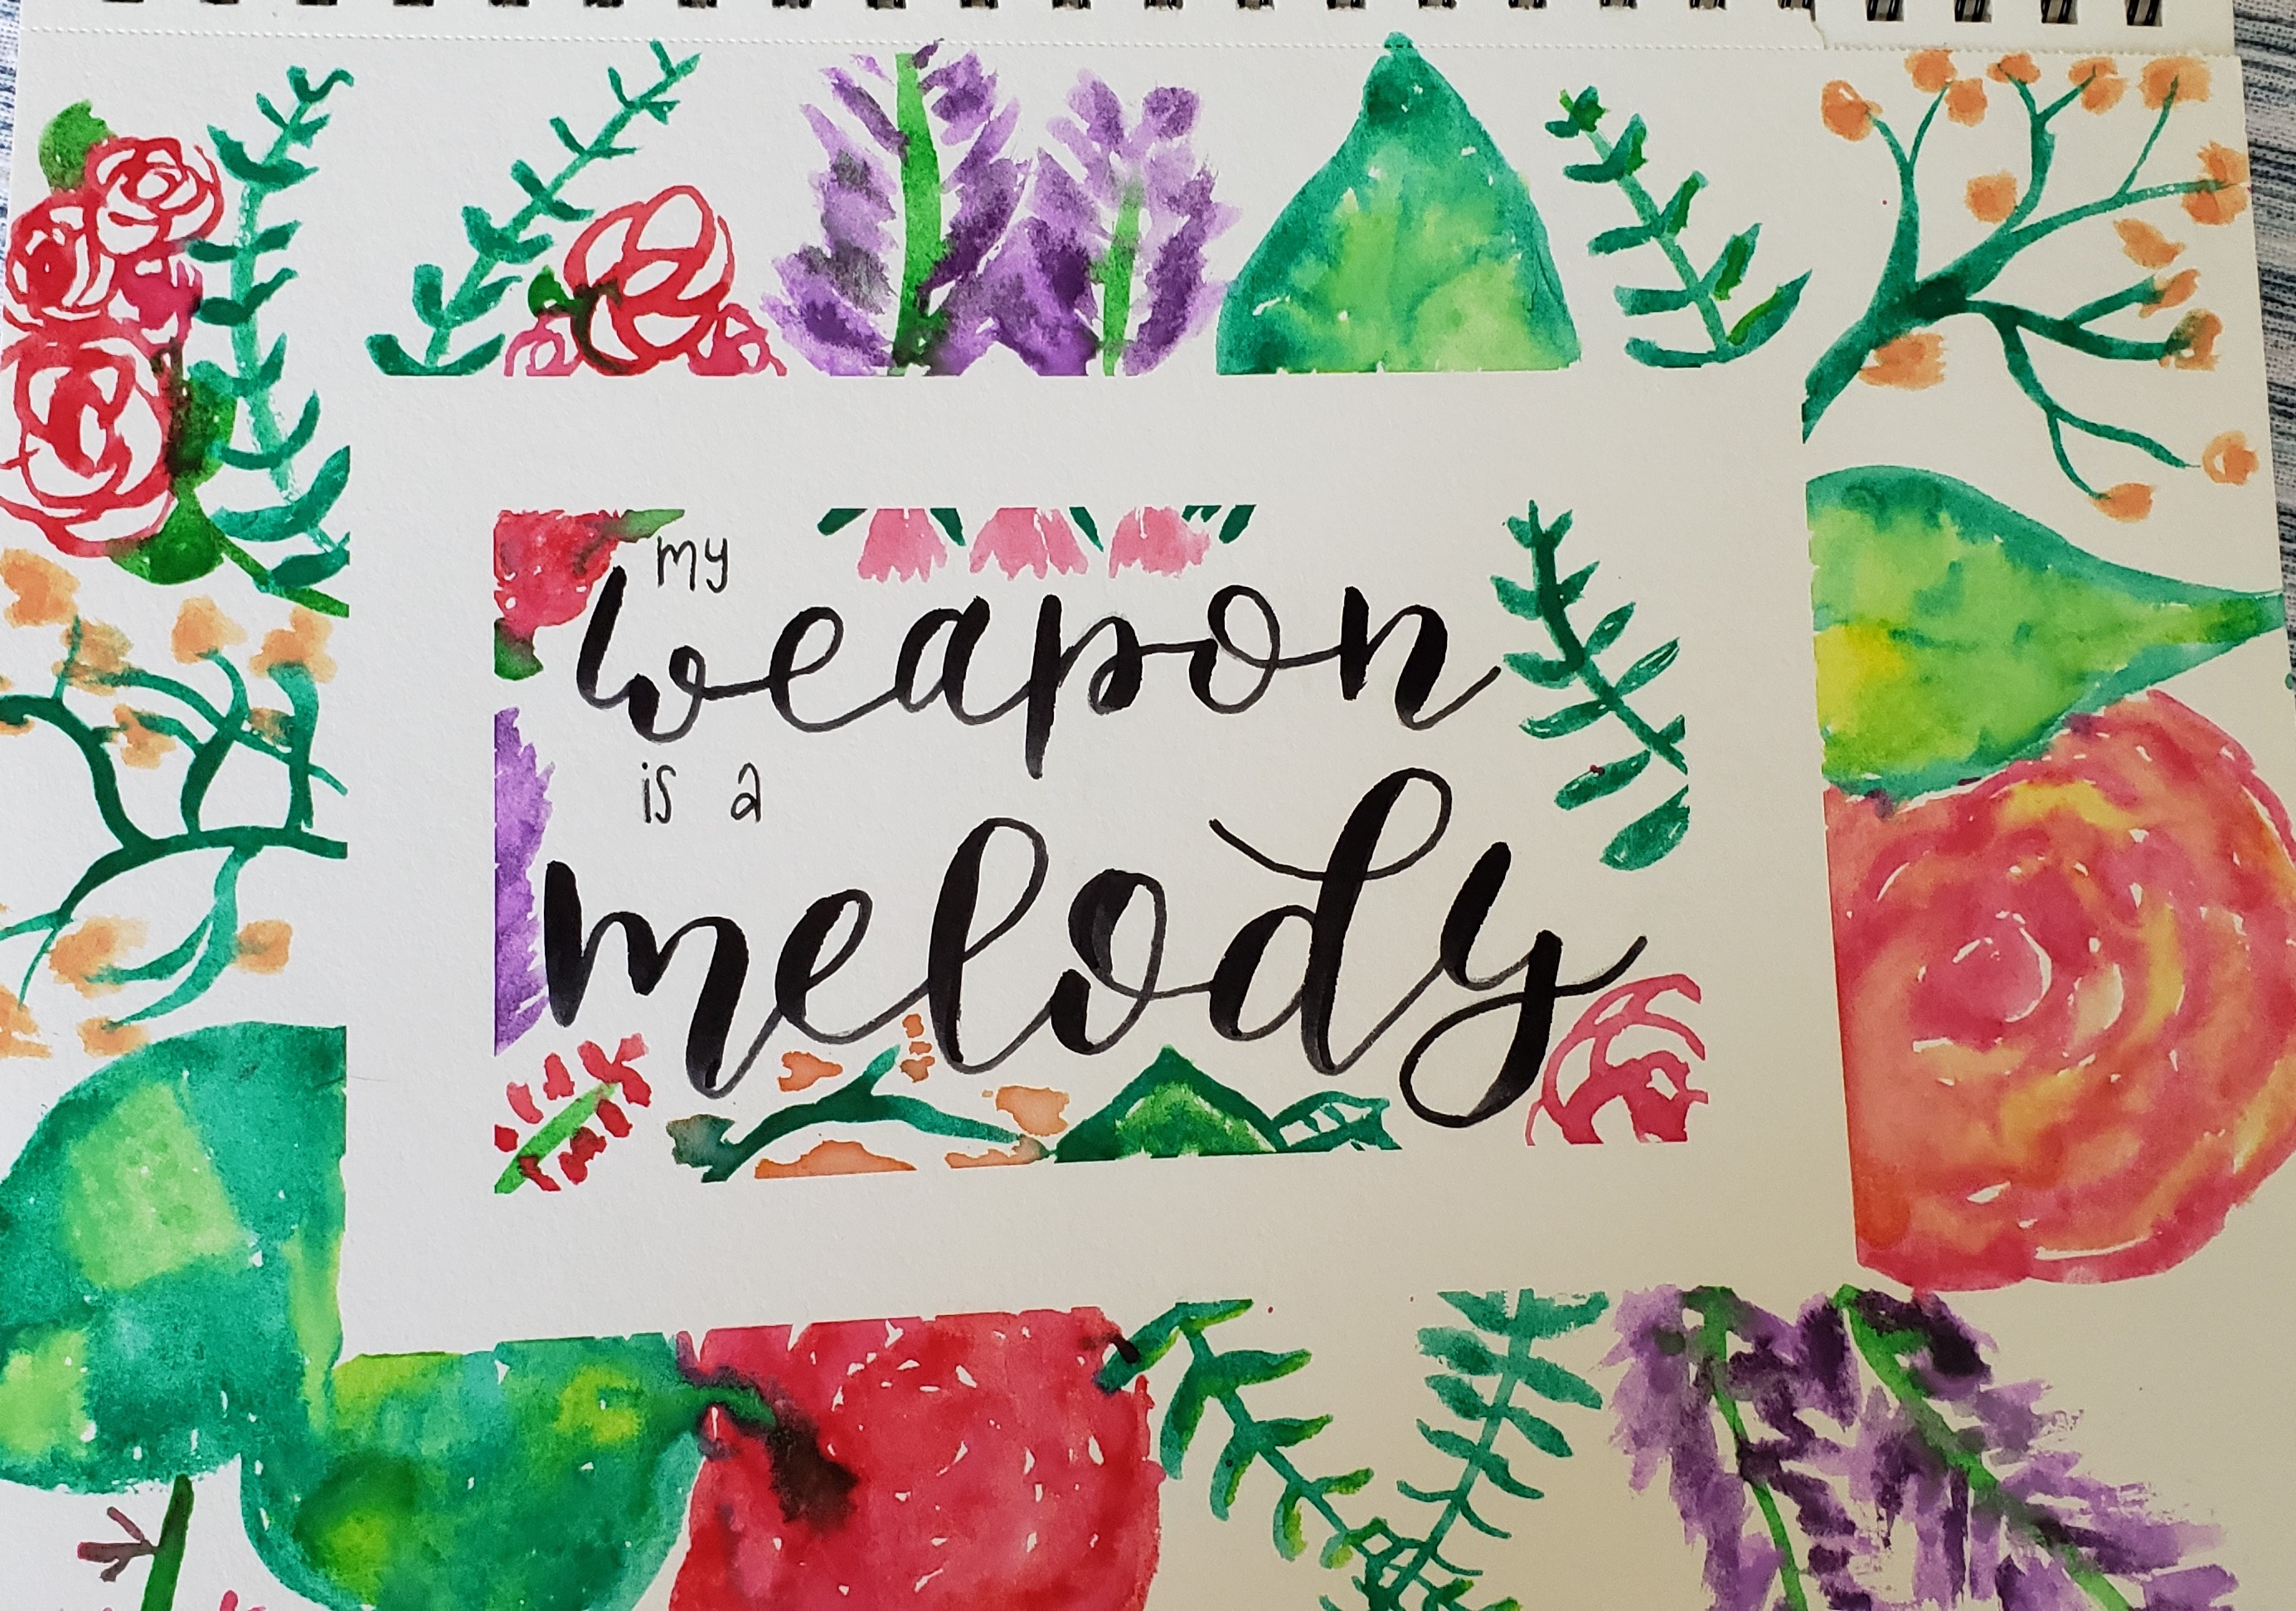 my
weapon
is a
melody